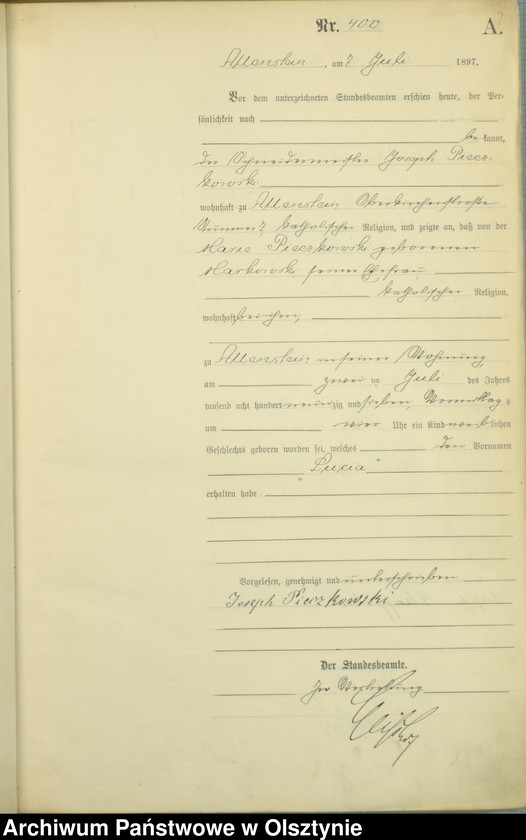 Nr. 400 A.
Allenstein, am 7. Juli 1897.
Vor dem unterzeichneten Standesbeamten erschien heute, der Per-
sönlichkeit nach
be kannt,
der Schneidermeister Joseph Piecz-
kowski
wohnhaft zu Allenstein Oberkirchenstraße
Nummer katholischer Religion, und zeigte an, daß von der
Marie Pieczkowski geborenen
Markowski seiner Ehefrau,
katholischer Religion,
wohnhaft bei ihm,
zu Allenstein, in seiner Wohnung,
am zwei ten Juli des Jahres
tausend acht hundert neunzig und sieben, Vormittags
um vier Uhr ein Kind weiblichen
Geschlechts geboren worden sei, welches den Vornamen
"Lucia"
erhalten habe.
Vorgelesen, genehmigt und unterschrieben
Joseph Pieczkowski
Der Standesbeamte.
In Vertretung
Archiwum Państwowe w Olsztynie